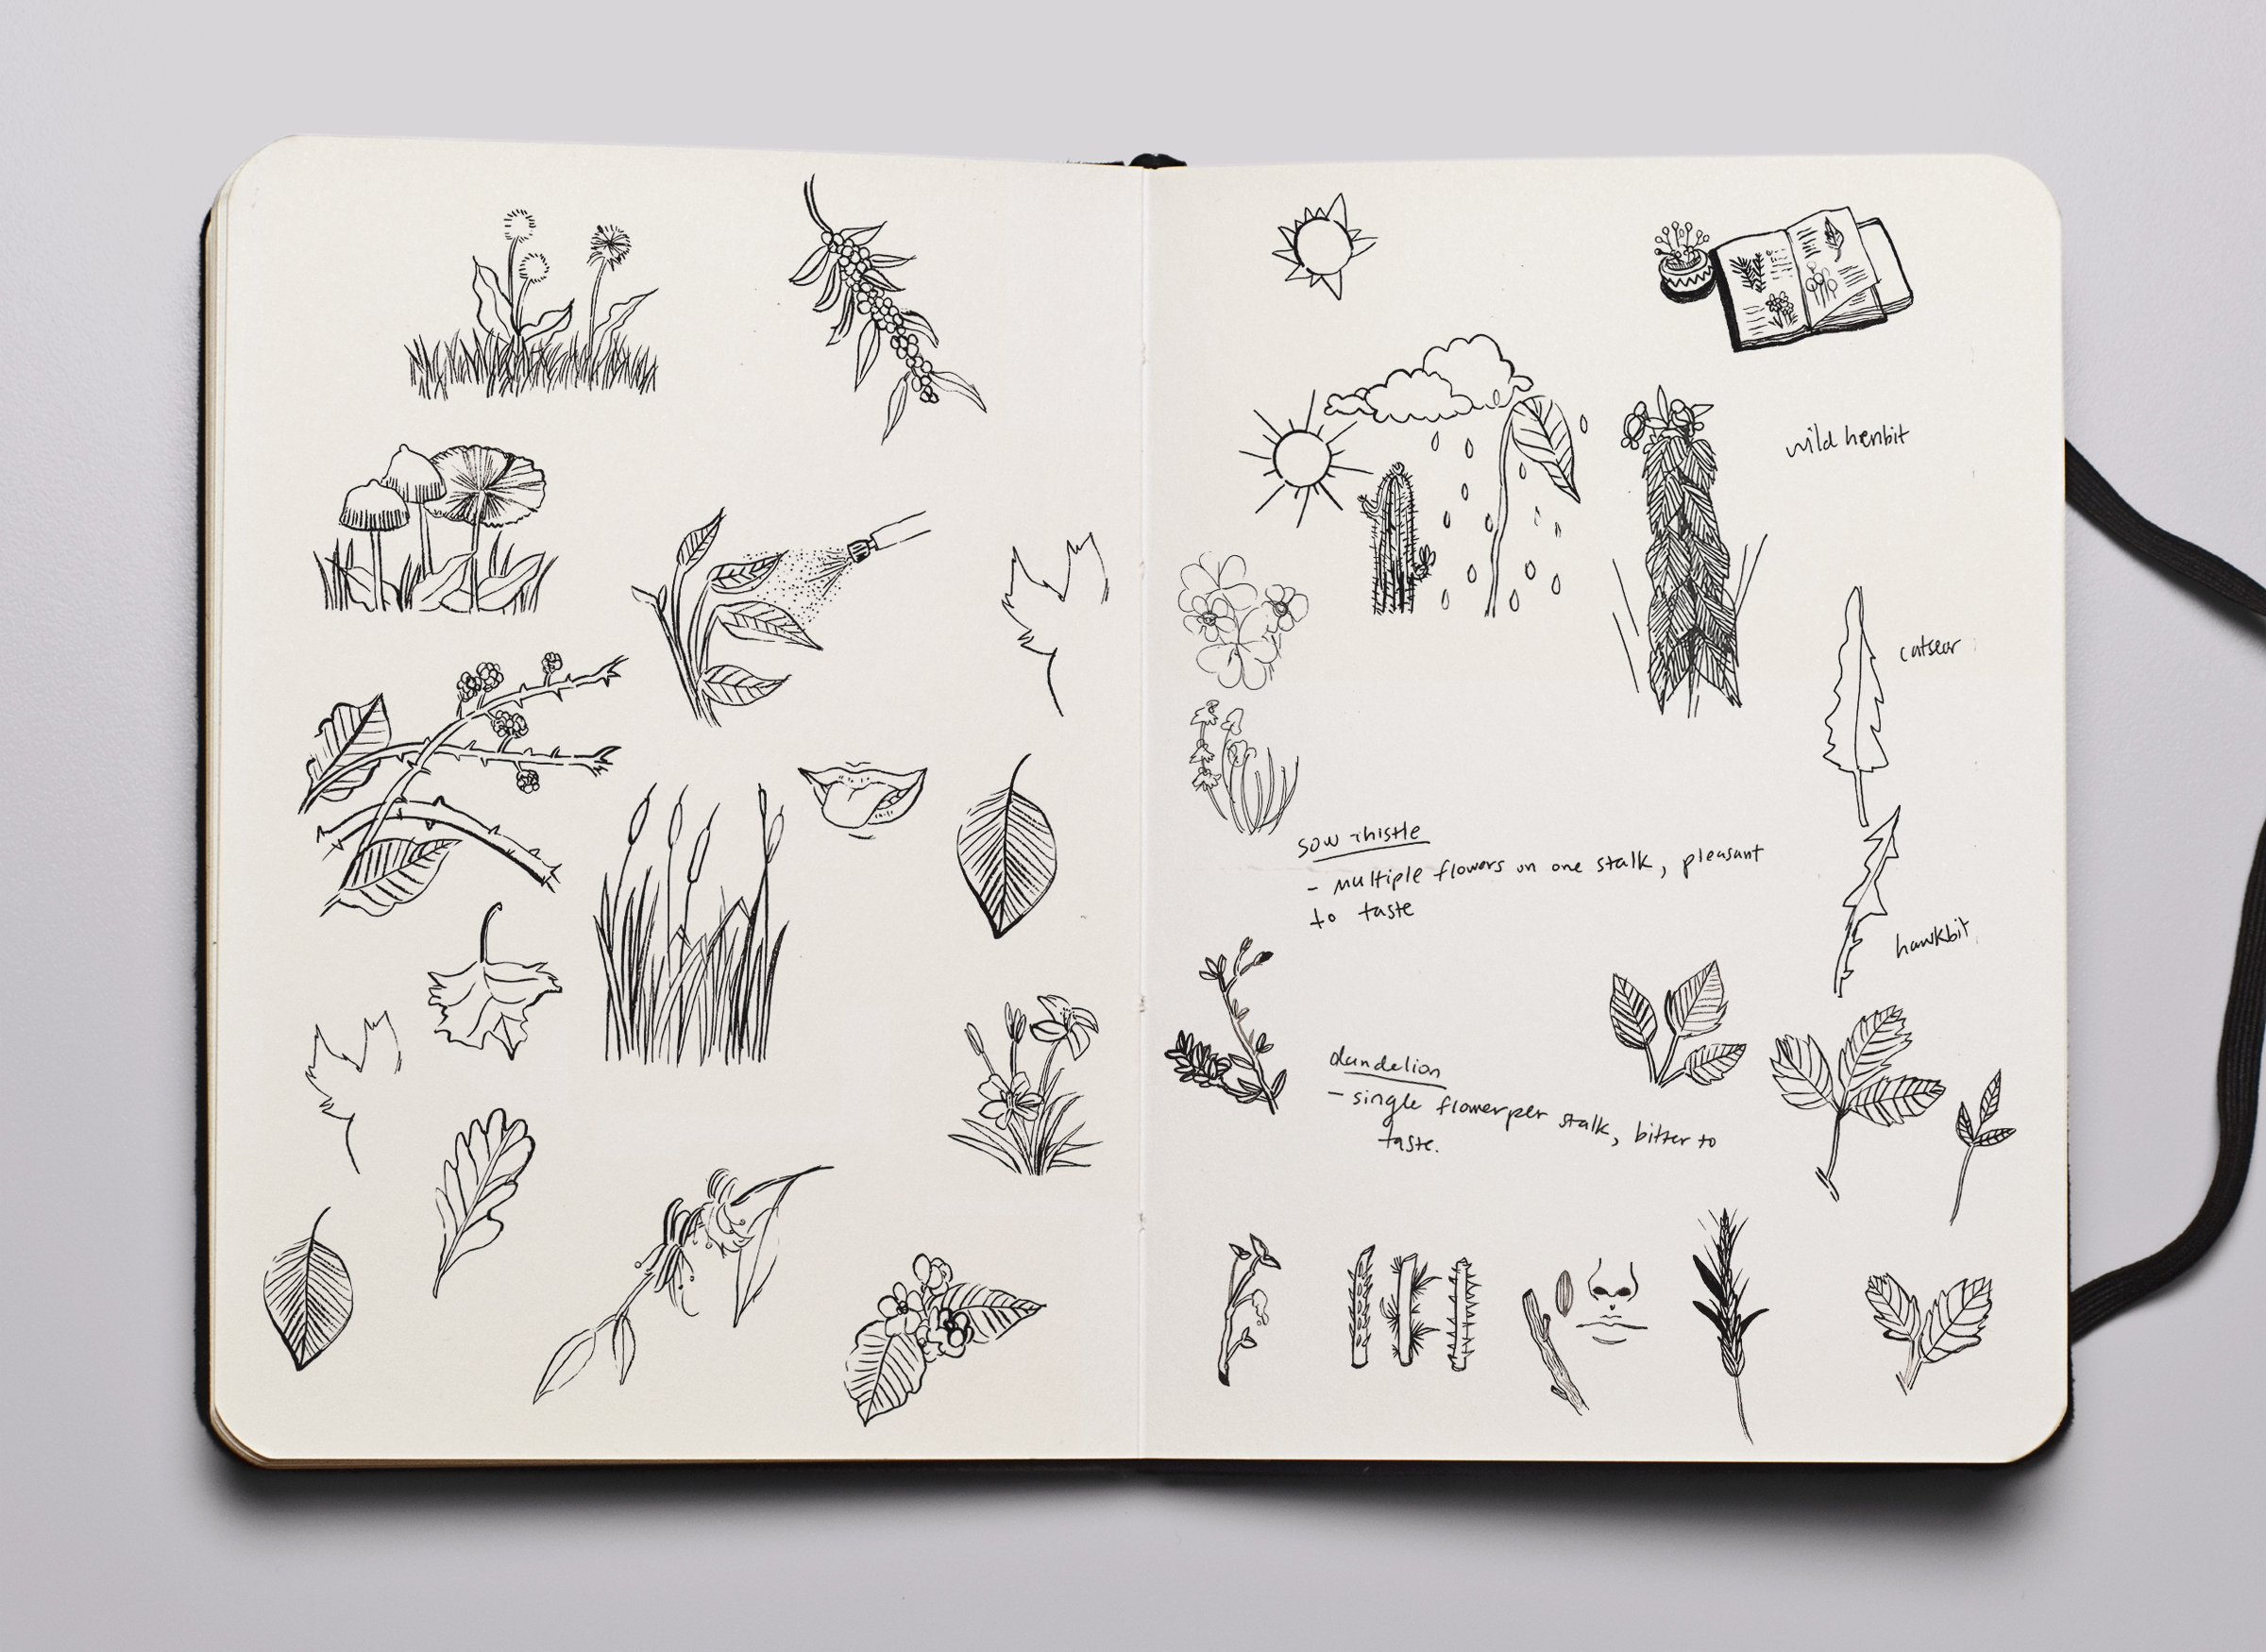 wild henbit
catsear
sow thistle
- multiple flowers on one stalk, pleasant
to taste
hawkbit
dandelion
- single flower per stalk, bitter to
taste.